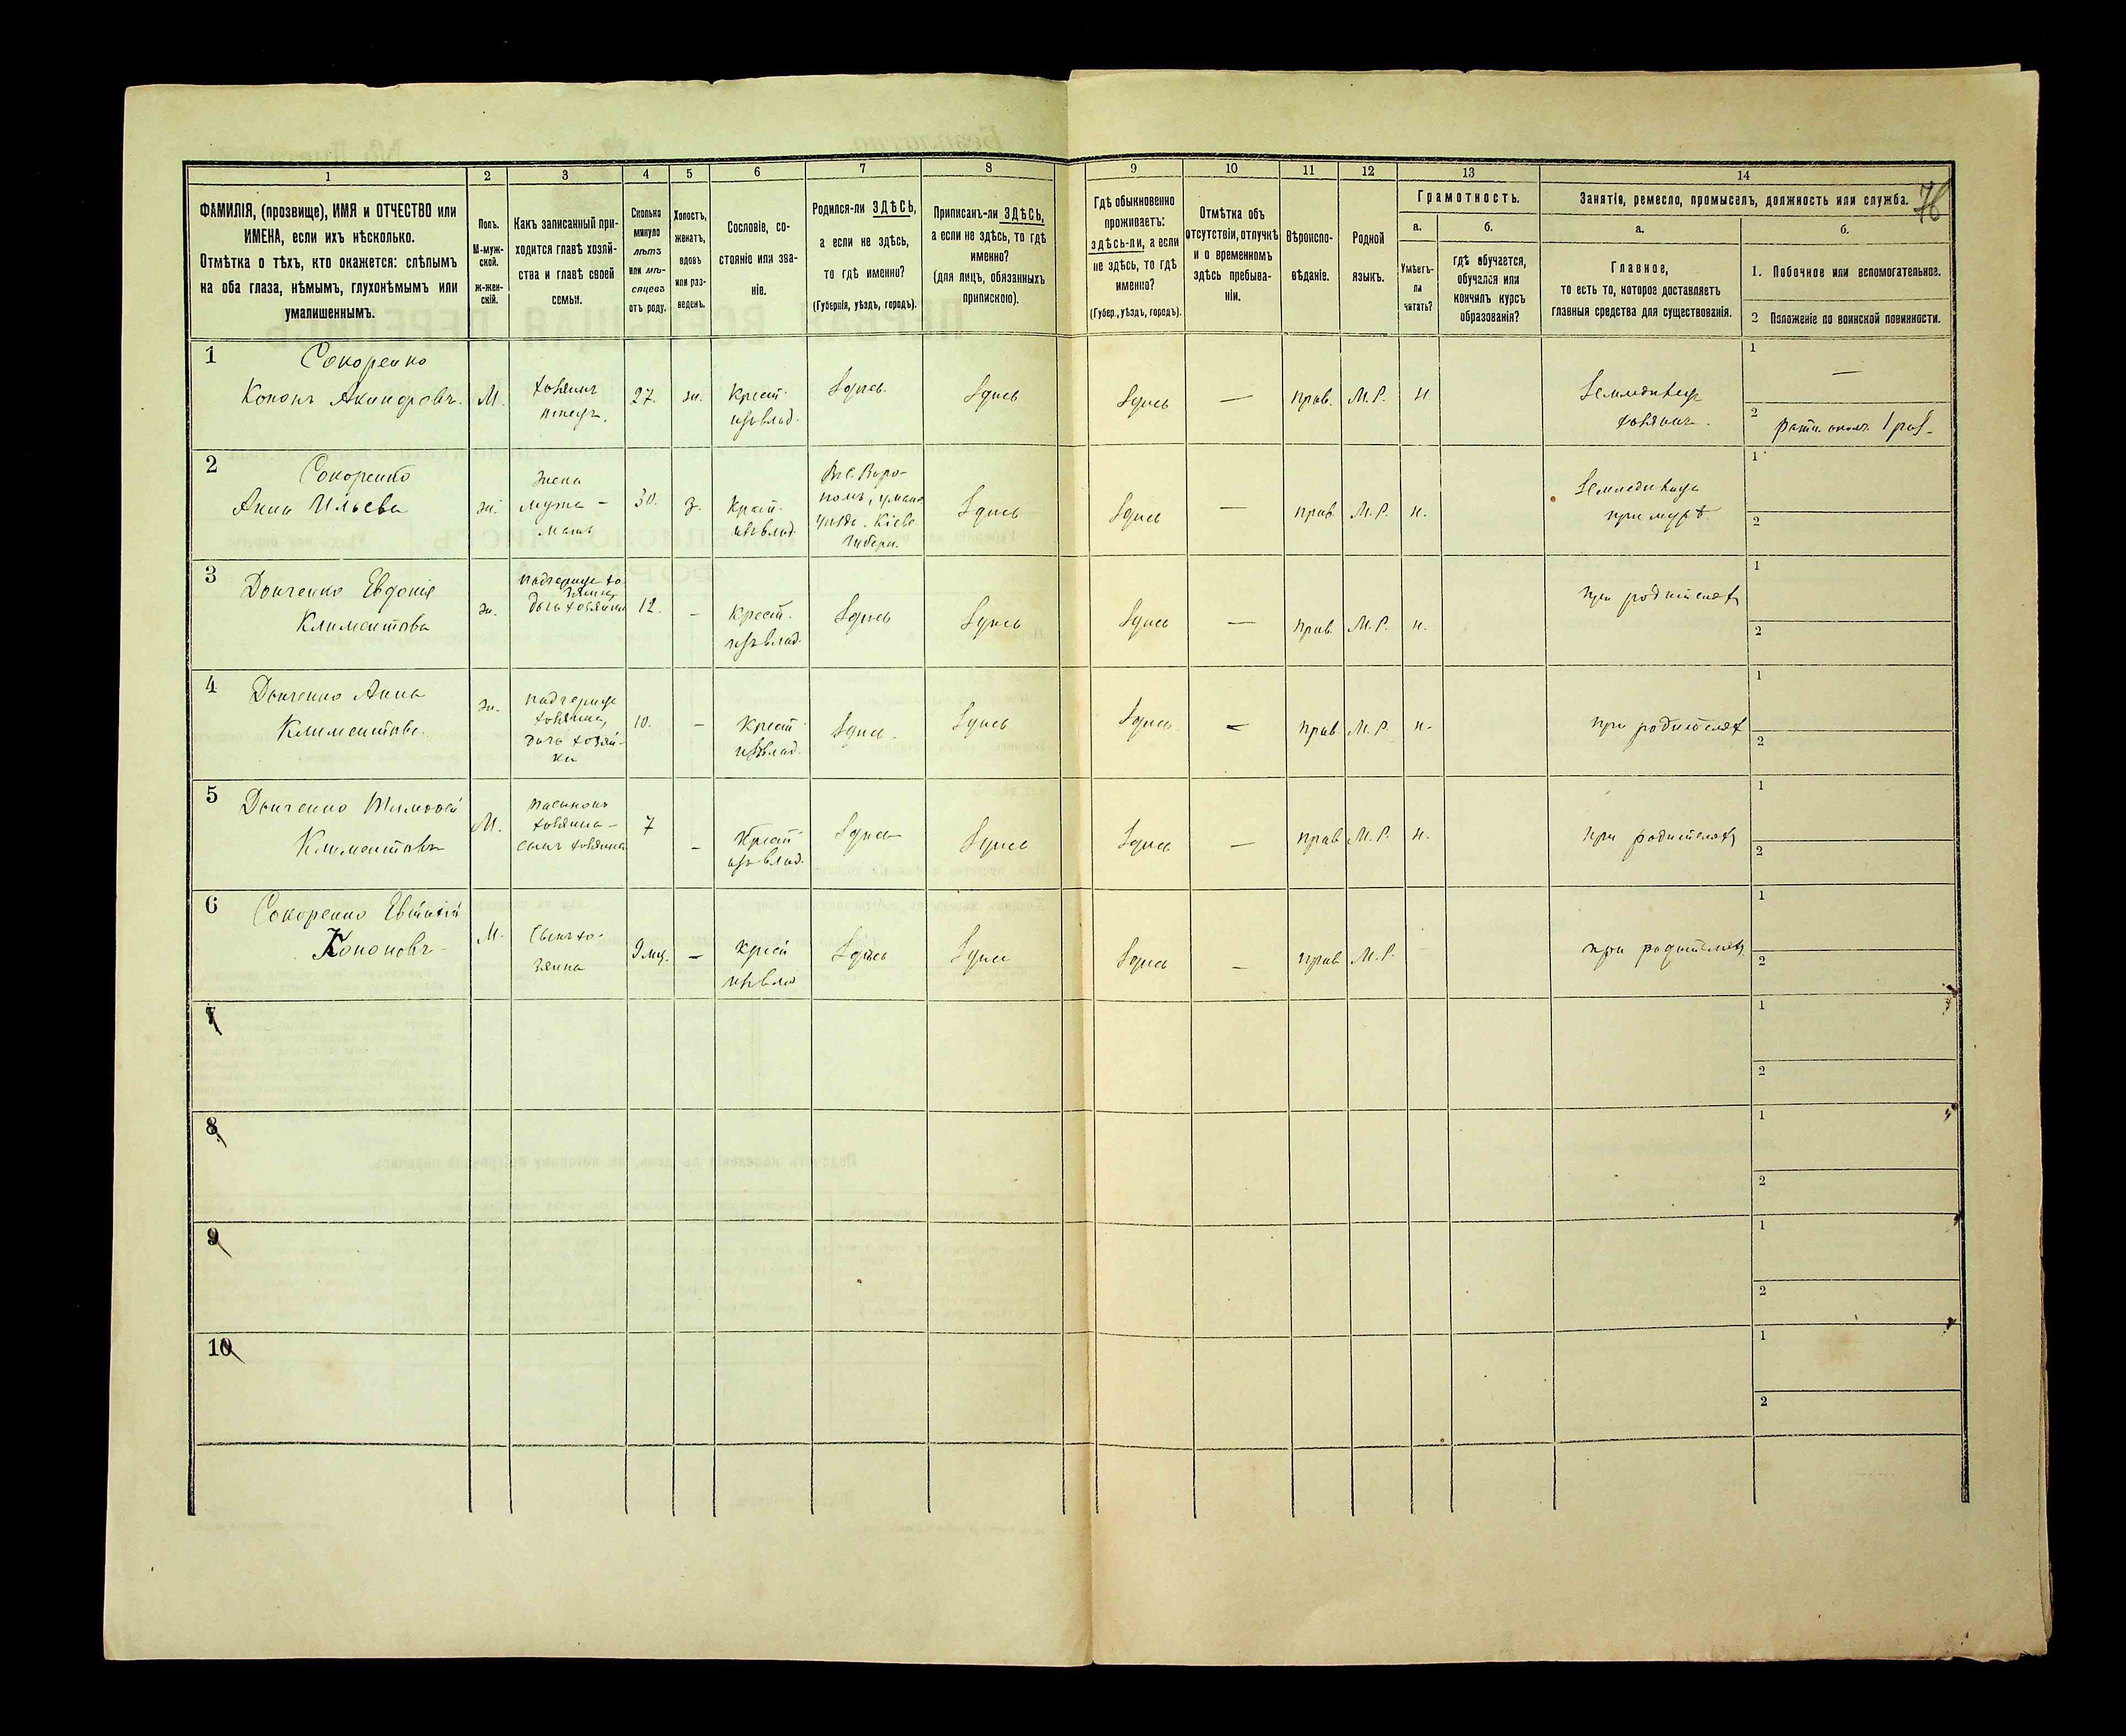 76
1 2 3 4 5 6 7 8 9 10 11 12 13 14
ФАМИЛІЯ, (прозвище), ИМЯ и ОТЧЕСТВО или
ИМЕНА, если ихъ нѣсколько.
Отмѣтка о тѣхъ, кто окажется: слѣпымъ
на оба глаза, нѣмымъ, глухонѣмымъ или
умалишеннымъ.
Полъ.
М-муж-
ской.
ж-жен-
скій.
Какъ записанный при-
ходится главѣ хозяй-
ства и главѣ своей
семьи.
Сколько
минуло
лѣтъ
или мѣ-
сяцевъ
отъ роду.
Холостъ,
женатъ,
вдовъ
или раз-
веденъ.
Сословіе, со-
стояніе или зва-
ніе.
Родился-ли ЗДѢСЬ,
а если не здѣсь,
то гдѣ именно?
(Губернія, уѣздъ, городъ).
Приписанъ-ли ЗДѢСЬ,
а если не здѣсь, то гдѣ
именно?
(для лицъ, обязанныхъ
припискою).
Гдѣ обыкновенно
проживаетъ:
здѣсь-ли, а если
не здѣсь, то гдѣ
именно?
(Губер., уѣздъ, городъ).
Отмѣтка объ
отсутствіи, отлучкѣ
и о временномъ
здѣсь пребыва-
ніи.
Вѣроиспо-
вѣданіе.
Родной
языкъ.
Грамотность.
а.
Умѣетъ-
ли
читать?
б.
гдѣ обучается,
обучался или
кончилъ курсъ
образованія?
Занятіе, ремесло, промыселъ, должность или служба.
а.
Главное,
то есть то, которое доставляетъ
главныя средства для существованія.
б.
1. Побочное или вспомогательное.
2 Положеніе по воинской повинности.
1 Сокоренко
Кононъ
М.
хозяинъ
27.
ж.
Крест.
изъ влад.
Здѣсь
Здѣсь
Здѣсь
—
прав.
М.Р.
н
хозяинъ.
1
—
2
2 Сокоренко
Анна Ильева
ж.
Жена
мужа –
мать
30.
з.
Крест.
изъ влад.
Губерн.
Здѣсь
Здѣсь
—
прав
М.Р.
н.
при мужѣ
1
2
3 Донченко Евдокія
Климентова
ж.
падчерица хо-
зяина,
дочь хозяйки
12.
–
Крест.
изъ влад.
Здѣсь
Здѣсь
Здѣсь
—
прав
М.Р.
н.
при родителях
1
2
4 Донченко Анна
Климентова.
ж.
падчерица
хозяина,
дочь хозяй-
ки
10.
–
Крест
изъ влад.
Здѣсь
Здѣсь
Здѣсь
—
прав
М.Р.
н.
при родителях
1
2
5 Донченко Тимофей
Климентовъ
М.
пасынокъ
хозяина –
сынъ хозяйки
7
–
Крест
изъ влад.
Здѣсь
Здѣсь
Здѣсь
—
прав
М.Р.
н.
при родителях
1
2
6 Сокоренко Евтихій
Кононовъ
М.
Сынъ хо-
зяина
9 мц.
–
Здѣсь
Здѣсь
Здѣсь
–
прав
М.Р.
при родителях
1
2
7
1
2
8
1
2
9
1
2
10
1
2